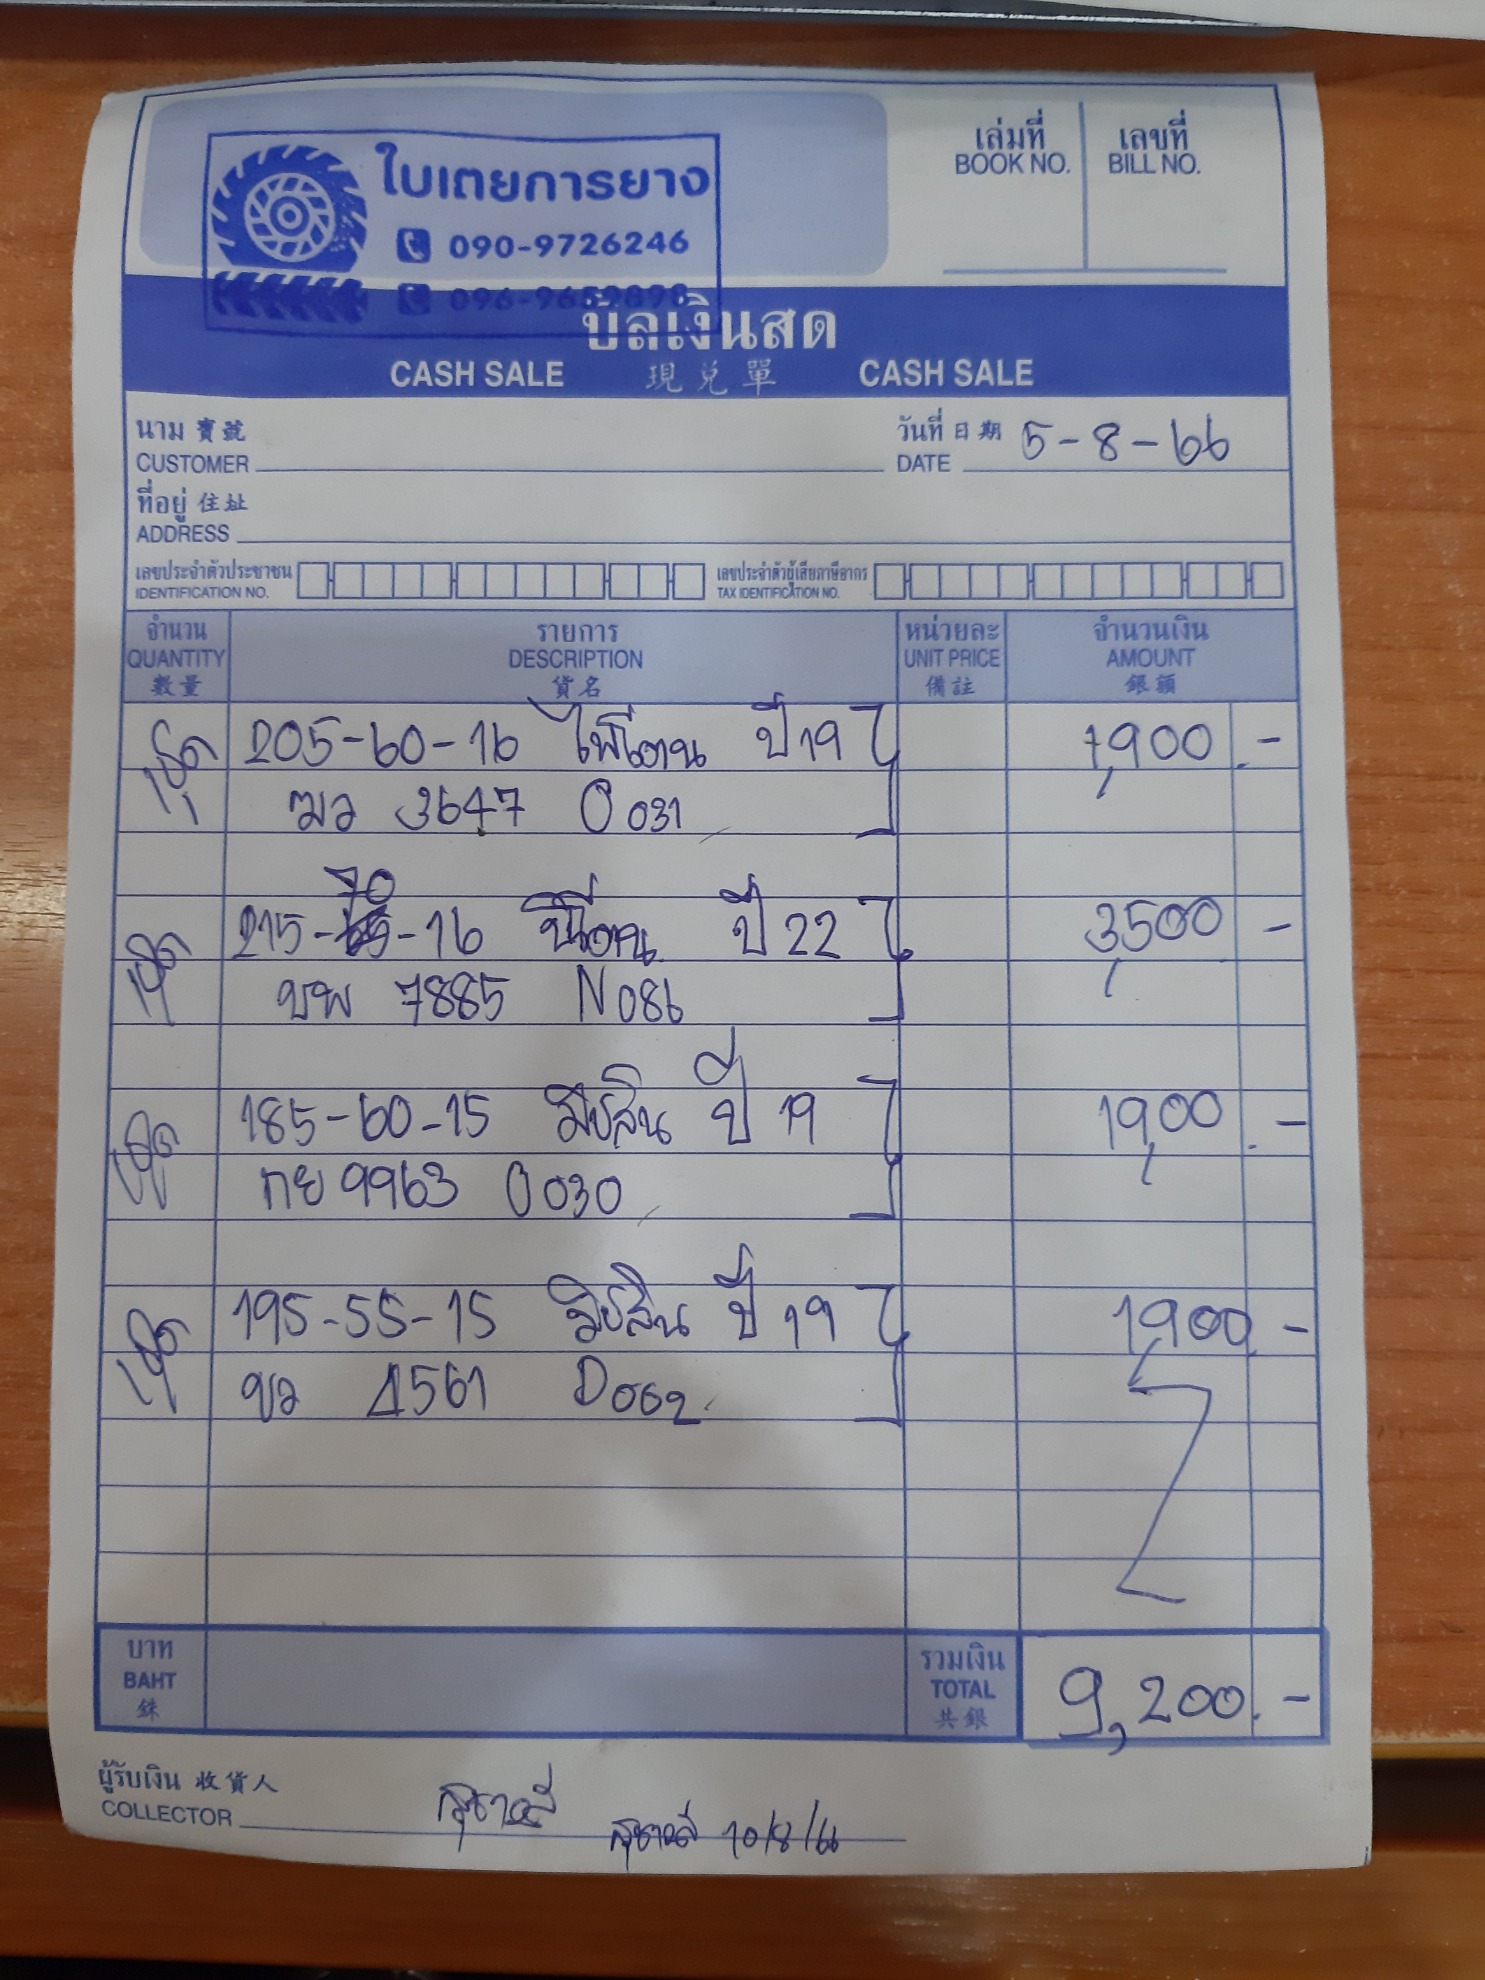 ใบเตยการยาง
090-9726246
096-9659898
เล่มที่ เลขที่
BOOK NO. BILL NO.
บิลเงินสด
CASH SALE 現兌單 CASH SALE
นาม 寶號 วันที่ 日期 5-8-66
CUSTOMER DATE
ที่อยู่ 住址
ADDRESS
เลขประจำตัวประชาชน เลขประจำตัวผู้เสียภาษีอากร
IDENTIFICATION NO. TAX IDENTIFICATION NO.
จำนวน รายการ หน่วยละ จำนวนเงิน
QUANTITY DESCRIPTION UNIT PRICE AMOUNT
數量 貨名 備註 銀額
205-60-16 ปี 19 1,900.-
ฒว 3647 O031
70
215-65-16 ปี 22 3,500 -
ขพ 7885 N086
185-60-15 มิชลิน ปี 19 1,900.-
กย 9963 O030
195-55-15 มิชลิน ปี 19 1,900 -
ขว 4561 D062
บาท รวมเงิน
BAHT TOTAL 9,200.-
銖 共銀
ผู้รับเงิน 收貨人
COLLECTOR
10/8/66